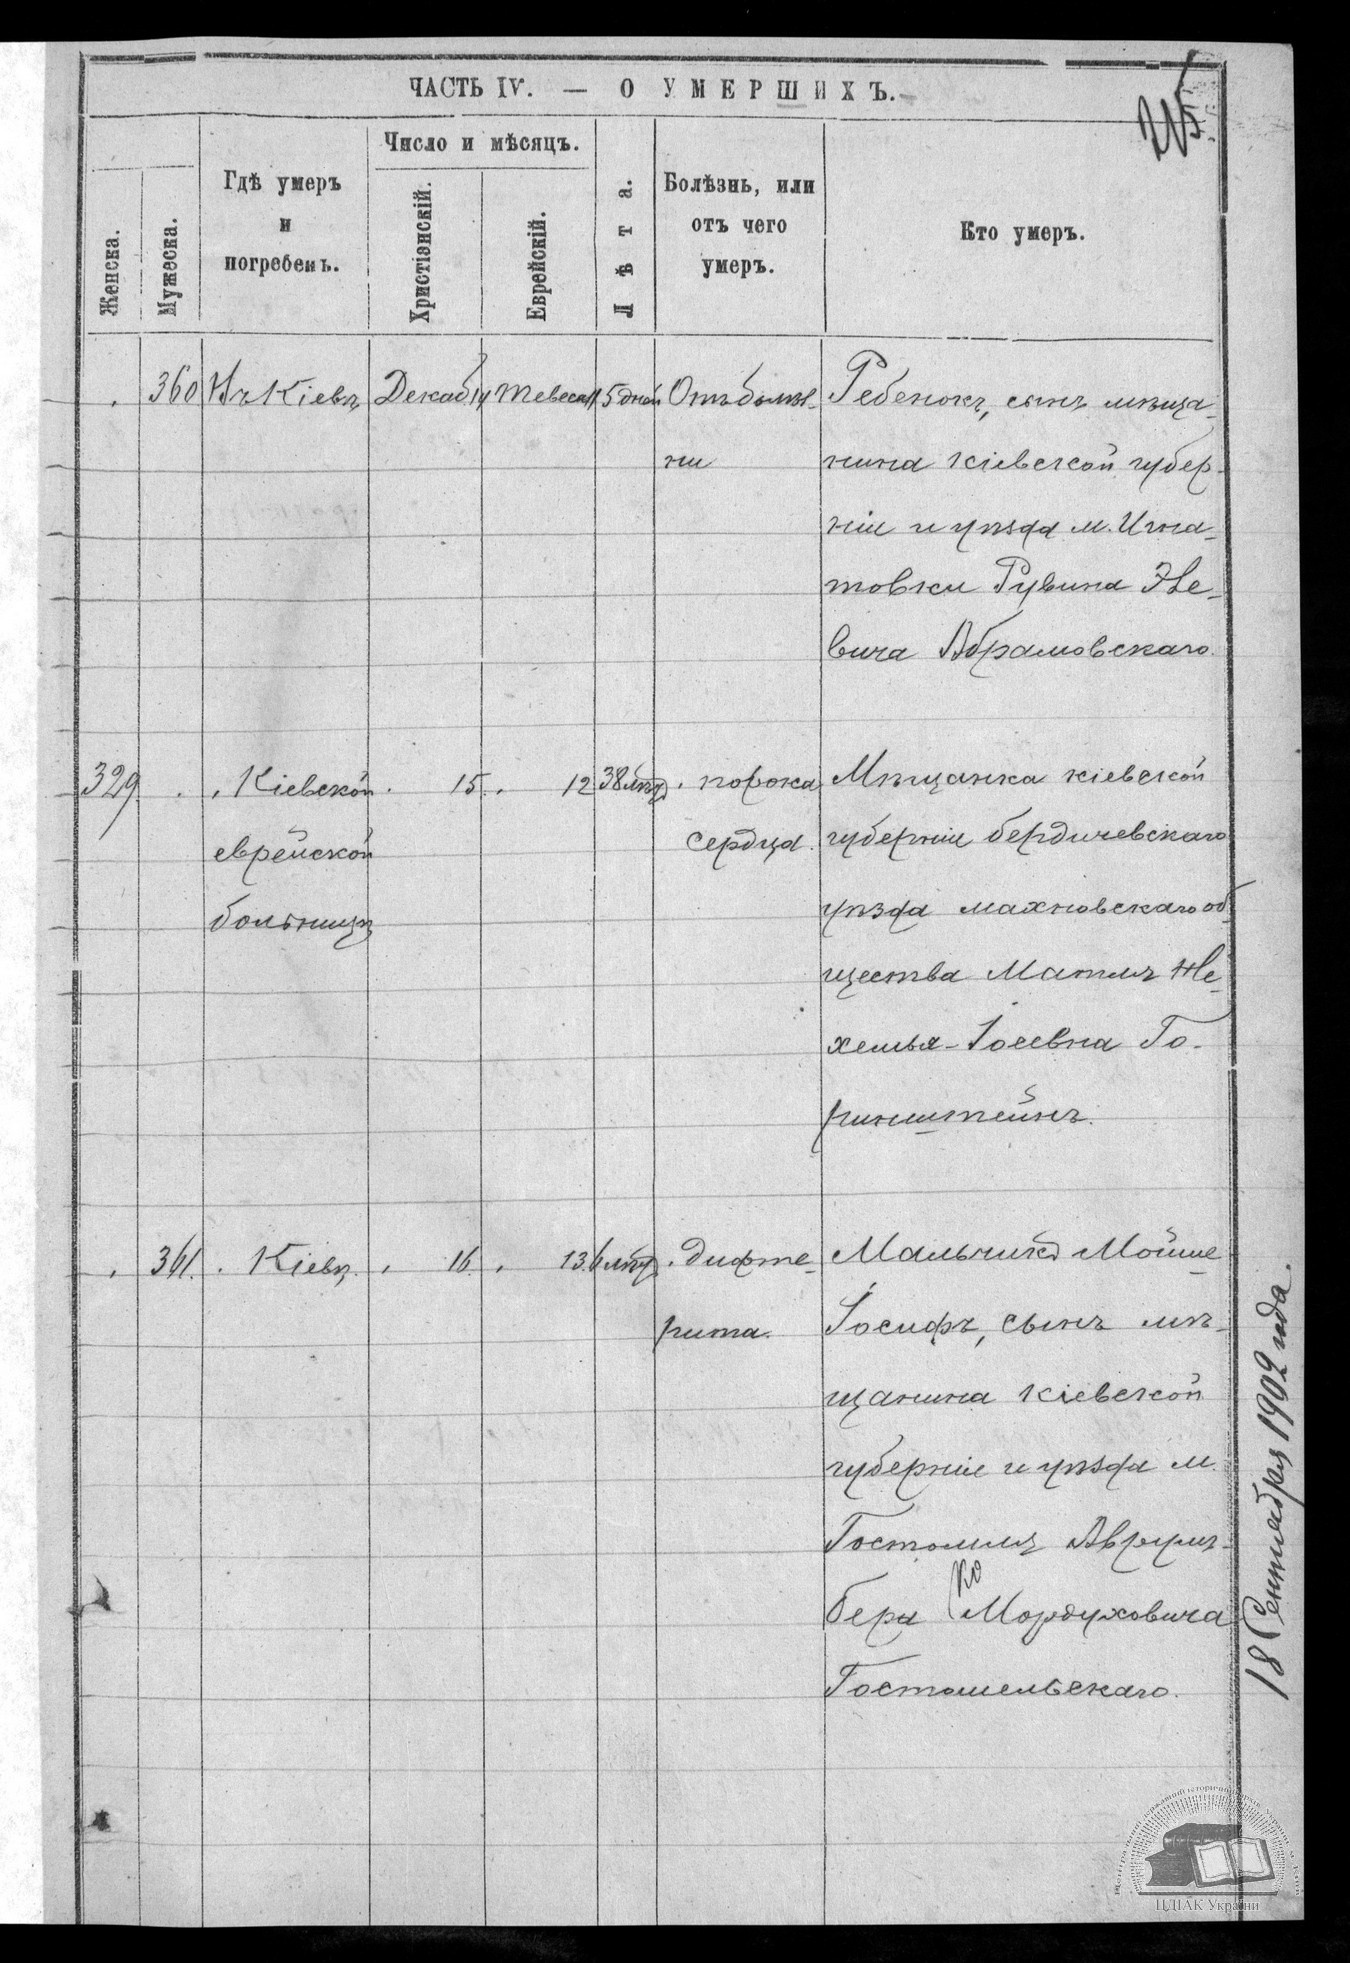 ЧАСТЬ IV. — О УМЕРШИХЪ.
215
Женска.
Мужеска.
Гдѣ умеръ
и
погребенъ.
Число и мѣсяцъ.
Христіэнскій.
Еврейскій.
Лѣта.
Болѣзнь, или
отъ чего
умеръ.
Кто умеръ.
360 Въ Кіевѣ Декаб 14 Тевеса 11 5 дней Отъ болѣз-
ни
Ребенокъ, сынъ мѣща-
нина Кіевской губер-
ніи и уѣзда м. Игна-
товки Рувина
вича Абрамовскаго.
329 Кіевской 15. 12 38 лѣтъ порока
еврейской сердца.
больницѣ
Мѣщанка Кіевской
губерніи бердичевскаго
уѣзда махновскаго об-
щества Матля Не-
хемья-Іосевна Го-
ринштейнъ.
361. Кіевѣ. 16. 13. 6 лѣтъ. дифте-
рита.
Мальчикъ Мойше
Іосифъ, сынъ мѣ-
щанина Кіевской
губерніи и уѣзда м.
Гостомля Аврумъ-
Бера Мордуховича
Гостомельскаго.
18 Сентября 1902 года.
ЦДІАК України